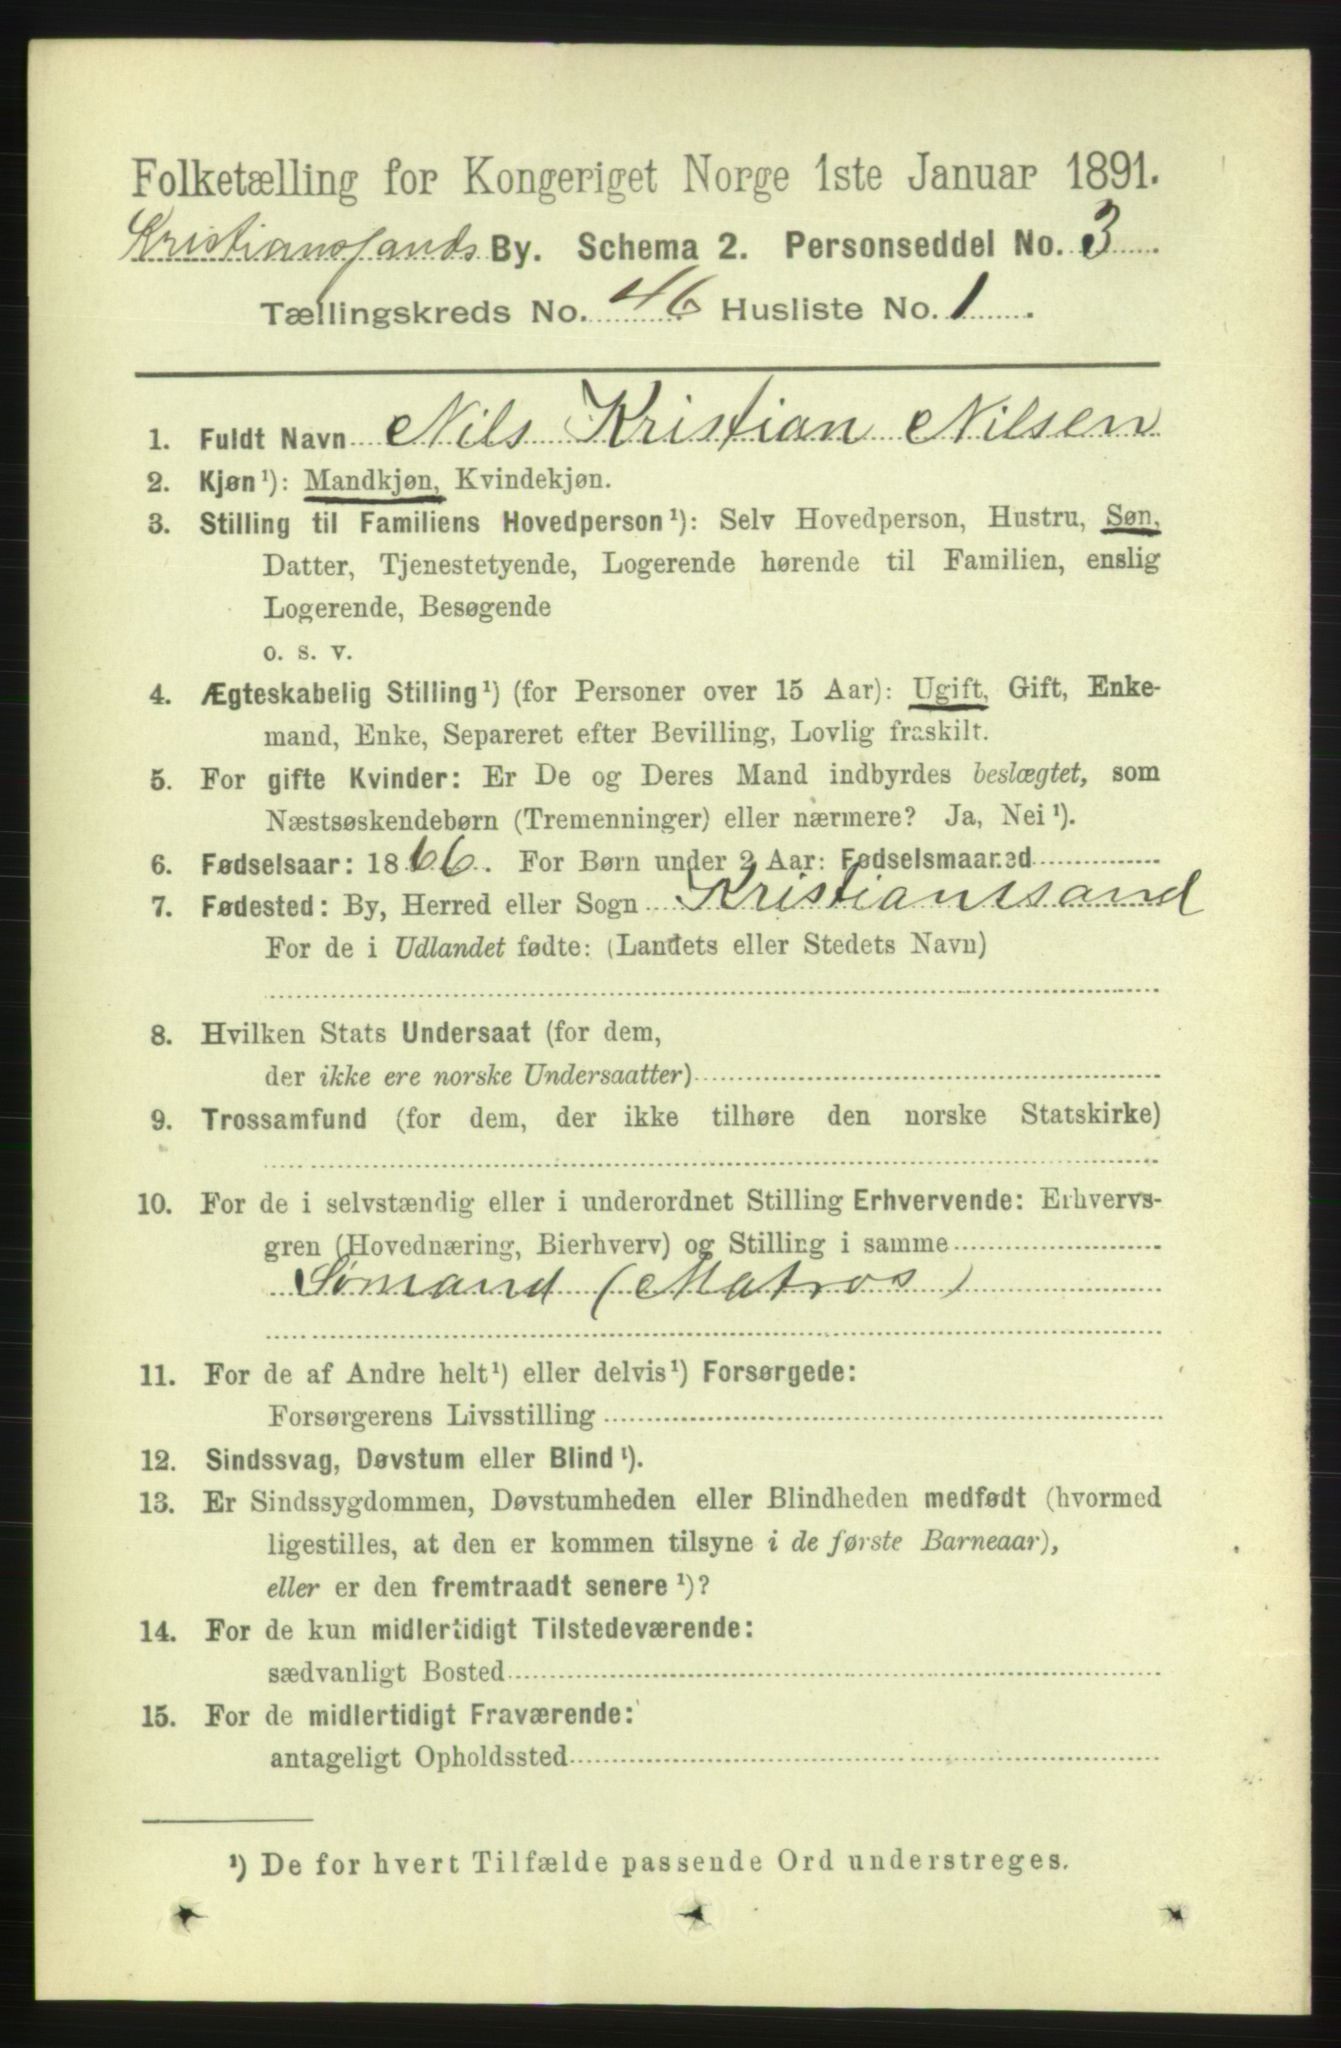 Folketælling for Kongeriget Norge 1ste Januar 1891.
Kristianssands By. Schema 2. Personseddel No. 3
Tællingskreds No. 46 Husliste No. 1
1. Fuldt Navn Nils Kristian Nilsen
2. Kjøn¹): Mandkjøn, Kvindekjøn.
3. Stilling til Familiens Hovedperson¹): Selv Hovedperson, Hustru, Søn,
Datter, Tjenestetyende, Logerende hørende til Familien, enslig
Logerende, Besøgende
o. s. v.
4. Ægteskabelig Stilling¹) (for Personer over 15 Aar): Ugift, Gift, Enke-
mand, Enke, Separeret efter Bevilling, Lovlig fraskilt.
5. For gifte Kvinder: Er De og Deres Mand indbyrdes beslægtet, som
Næstsøskendebørn (Tremenninger) eller nærmere? Ja, Nei¹).
6. Fødselsaar: 1866. For Børn under 2 Aar: Fødselsmaaned
7. Fødested: By, Herred eller Sogn Kristianssand
For de i Udlandet fødte: (Landets eller Stedets Navn)
8. Hvilken Stats Undersaat (for dem,
der ikke ere norske Undersaatter)
9. Trossamfund (for dem, der ikke tilhøre den norske Statskirke)
10. For de i selvstændig eller i underordnet Stilling Erhvervende: Erhvervs-
gren (Hovednæring, Bierhverv) og Stilling i samme
Sømand (Matros)
11. For de af Andre helt¹) eller delvis¹) Forsørgede:
Forsørgerens Livsstilling
12. Sindssvag, Døvstum eller Blind¹).
13. Er Sindssygdommen, Døvstumheden eller Blindheden medfødt (hvormed
ligestilles, at den er kommen tilsyne i de første Barneaar),
eller er den fremtraadt senere¹)?
14. For de kun midlertidigt Tilstedeværende:
sædvanligt Bosted
15. For de midlertidigt Fraværende:
antageligt Opholdssted
¹) De for hvert Tilfælde passende Ord understreges.